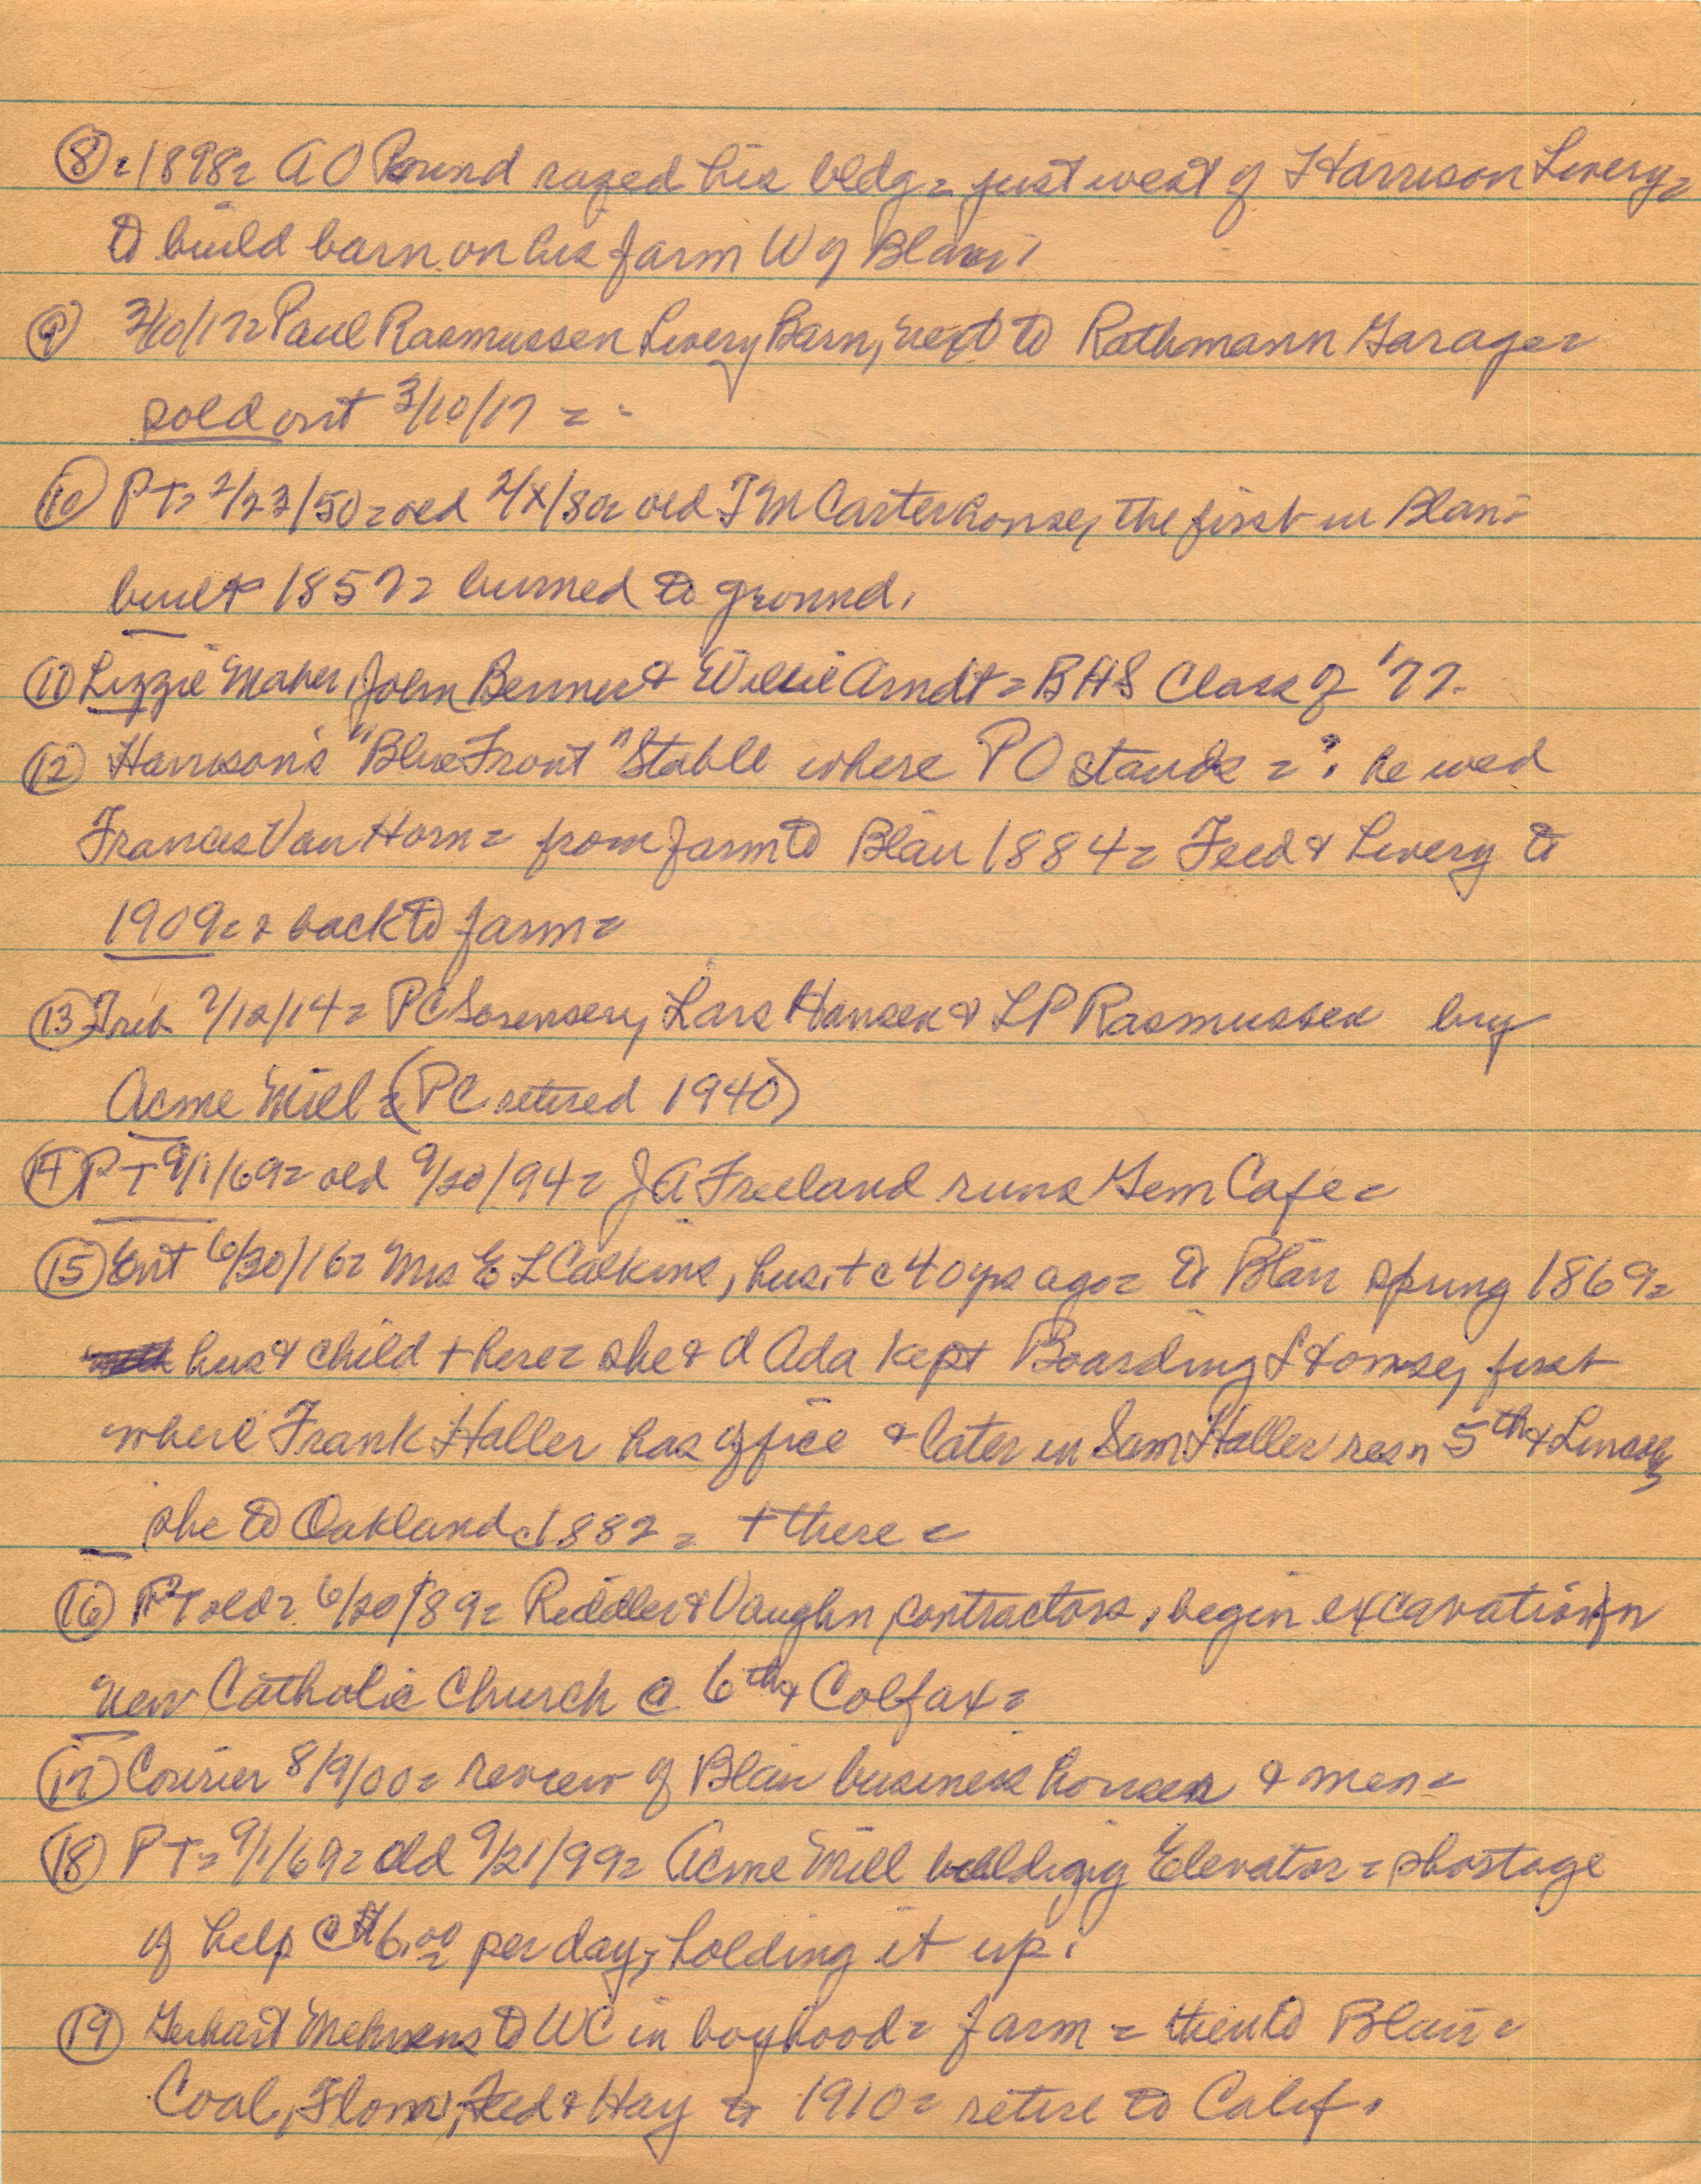 ⑧ = 1898 = A O Pound razed his bldg = just west of Harrison Livery =
to build barn on his farm W of Blair.
⑨ 3/10/17 = Paul Rasmussen Livery Barn, next to Rathmann Garage =
sold out 3/10/17 = -
⑩ PT = 2/23/50 = old 2/X/80 = old T M Carter house, the first in Blair =
built 1857 = burned to ground.
⑪ Lizzie Maher, John Benner & Willie Arndt = BHS Class of '77.
⑫ Harrison's "Blue Front" Stable where PO stands = ? he wed
Frances Van Horn = from farm to Blair 1884 = Feed & Livery to
1909 = & back to farm =
⑬ Trib 2/12/14 = PC Sorensen, Lars Hansen & LP Rasmussen buy
Acme Mill = (PC retired 1940)
⑭ PT 9/1/69 = old 9/20/94 = J A Freeland runs Gem Cafe =
⑮ Ent 6/30/16 = Mrs E L Calkins, hus. + c 40 yrs ago = to Blair spring 1869 =
hus & child + here = she & d Ada kept Boarding House, first
where Frank Haller has office & later in Sam Haller resn 5th &
she to Oakland c1882 = + there =
⑯ PT old = 6/20/89 = Riddler & Vaughn, contractors, begin excavation
new Catholic Church @ 6th & Colfax =
⑰ Courier 8/9/00 = review of Blair business houses & men =
⑱ PT = 9/1/69 = old 9/21/99 = Acme Mill building Elevator = shortage
of help @ $6.00 per day, holding it up.
⑲ Gerhart Mehrens to WC in boyhood = farm = then to Blair =
Coal, Flour, Feed & Hay to 1910 = retire to Calif.